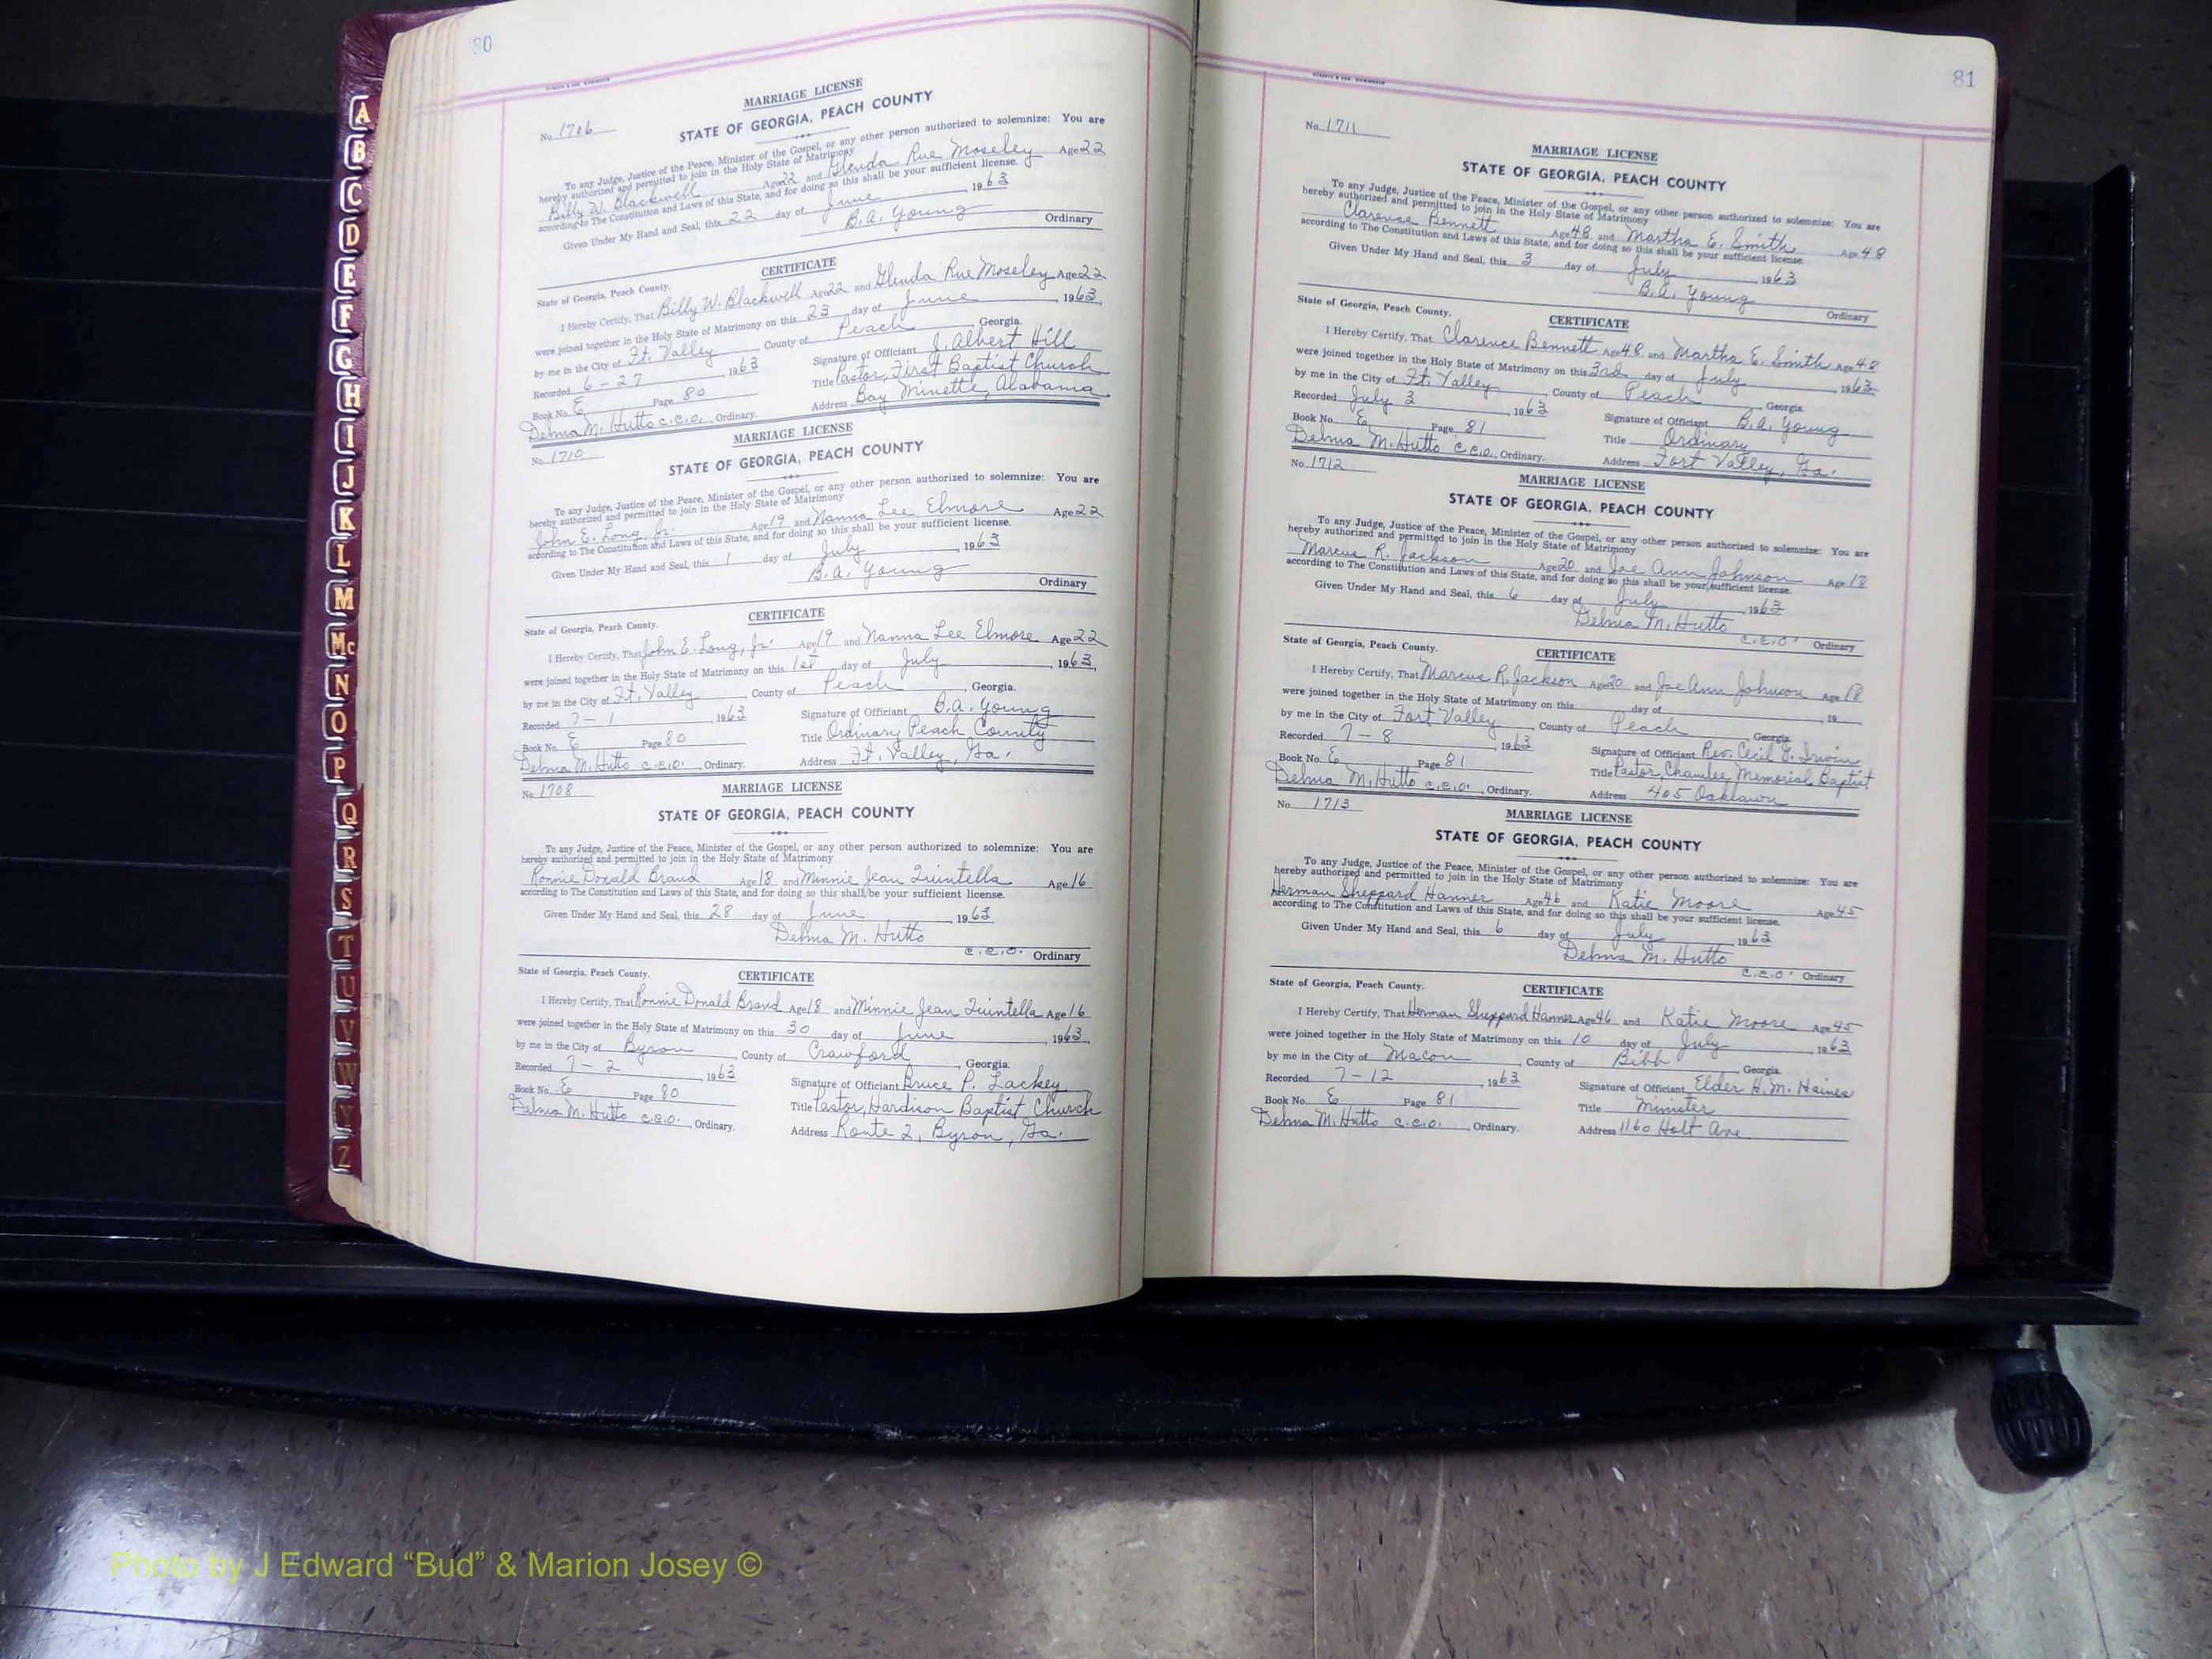 80
MARRIAGE LICENSE
No. 1706
STATE OF GEORGIA, PEACH COUNTY
To any Judge, Justice of the Peace, Minister of the Gospel, or any other person authorized to solemnize: You are
hereby authorized and permitted to join in the Holy State of Matrimony
Billy W. Blackwell Age 22 and Glenda Rue Moseley Age 22
according to The Constitution and Laws of this State, and for doing so this shall be your sufficient license.
Given Under My Hand and Seal, this 22 day of June, 1963
B.A. Young
Ordinary
CERTIFICATE
State of Georgia, Peach County.
I Hereby Certify, That Billy W. Blackwell Age 22 and Glenda Rue Moseley Age 22
were joined together in the Holy State of Matrimony on this 23 day of June, 1963.
by me in the City of Ft. Valley, County of Peach, Georgia.
Recorded 6-27 1963
Signature of Officiant J. Albert Hill
Book No. E Page 80
Title Pastor, First Baptist Church
Delma M. Hutto c.c.o., Ordinary.
Address Bay Minette, Alabama
MARRIAGE LICENSE
No. 1710
STATE OF GEORGIA, PEACH COUNTY
To any Judge, Justice of the Peace, Minister of the Gospel, or any other person authorized to solemnize: You are
hereby authorized and permitted to join in the Holy State of Matrimony
John E. Long, Jr. Age 19 and Nanna Lee Elmore Age 22
according to The Constitution and Laws of this State, and for doing so this shall be your sufficient license.
Given Under My Hand and Seal, this 1 day of July, 1963
B.A. Young
Ordinary
CERTIFICATE
State of Georgia, Peach County.
I Hereby Certify, That John E. Long, Jr. Age 19 and Nanna Lee Elmore Age 22
were joined together in the Holy State of Matrimony on this 1st day of July, 1963.
by me in the City of Ft. Valley, County of Peach, Georgia.
Recorded 7-1, 1963
Signature of Officiant B.A. Young
Book No. E Page 80
Title Ordinary Peach County
Delma M. Hutto c.c.o., Ordinary.
Address Ft. Valley, Ga.
No. 1708
MARRIAGE LICENSE
STATE OF GEORGIA, PEACH COUNTY
To any Judge, Justice of the Peace, Minister of the Gospel, or any other person authorized to solemnize: You are
hereby authorized and permitted to join in the Holy State of Matrimony
Ronnie Donald Braud Age 18 and Minnie Jean Quintella Age 16
according to The Constitution and Laws of this State, and for doing so this shall be your sufficient license.
Given Under My Hand and Seal, this 28 day of June, 1963
Delma M. Hutto
c.c.o. Ordinary
State of Georgia, Peach County. CERTIFICATE
I Hereby Certify, That Ronnie Donald Braud Age 18 and Minnie Jean Quintella Age 16
were joined together in the Holy State of Matrimony on this 30 day of June, 1963.
by me in the City of Byron, County of Crawford, Georgia.
Recorded 7-2, 1963
Signature of Officiant Bruce P. Lackey
Book No. E Page 80
Title Pastor, Hardison Baptist Church
Delma M. Hutto c.c.o., Ordinary.
Address Route 2, Byron, Ga.
81
No. 1711
MARRIAGE LICENSE
STATE OF GEORGIA, PEACH COUNTY
To any Judge, Justice of the Peace, Minister of the Gospel, or any other person authorized to solemnize: You are
hereby authorized and permitted to join in the Holy State of Matrimony
Clarence Bennett Age 48 and Martha E. Smith Age 48
according to The Constitution and Laws of this State, and for doing so this shall be your sufficient license.
Given Under My Hand and Seal, this 3 day of July, 1963
B.A. Young
Ordinary
State of Georgia, Peach County. CERTIFICATE
I Hereby Certify, That Clarence Bennett Age 48 and Martha E. Smith Age 48
were joined together in the Holy State of Matrimony on this 3rd day of July, 1963
by me in the City of Ft. Valley, County of Peach, Georgia.
Recorded July 3, 1963
Signature of Officiant B.A. Young
Book No. E Page 81
Title Ordinary
Delma M. Hutto c.c.o., Ordinary.
Address Fort Valley, Ga.
No. 1712
MARRIAGE LICENSE
STATE OF GEORGIA, PEACH COUNTY
To any Judge, Justice of the Peace, Minister of the Gospel, or any other person authorized to solemnize: You are
hereby authorized and permitted to join in the Holy State of Matrimony
Marcus R. Jackson Age 20 and Joe Ann Johnson Age 18
according to The Constitution and Laws of this State, and for doing so this shall be your sufficient license.
Given Under My Hand and Seal, this 6 day of July, 1963
Delma M. Hutto
c.c.o. Ordinary
State of Georgia, Peach County. CERTIFICATE
I Hereby Certify, That Marcus R. Jackson Age 20 and Joe Ann Johnson Age 18
were joined together in the Holy State of Matrimony on this day of, 19
by me in the City of Fort Valley, County of Peach, Georgia
Recorded 7-8, 1963
Signature of Officiant Rev. Cecil F. Irwin
Book No. E Page 81
Title Pastor, Chamlee Memorial Baptist
Delma M. Hutto c.c.o., Ordinary.
Address 405 Oaklawn
No. 1713
MARRIAGE LICENSE
STATE OF GEORGIA, PEACH COUNTY
To any Judge, Justice of the Peace, Minister of the Gospel, or any other person authorized to solemnize: You are
hereby authorized and permitted to join in the Holy State of Matrimony
Herman Sheppard Hanner Age 46 and Katie Moore Age 45
according to The Constitution and Laws of this State, and for doing so this shall be your sufficient license.
Given Under My Hand and Seal, this 6 day of July, 1963
Delma M. Hutto
c.c.o. Ordinary
State of Georgia, Peach County. CERTIFICATE
I Hereby Certify, That Herman Sheppard Hanner Age 46 and Katie Moore Age 45
were joined together in the Holy State of Matrimony on this 10 day of July, 1963
by me in the City of Macon, County of Bibb, Georgia
Recorded 7-12, 1963
Signature of Officiant Elder H.M. Haines
Book No. E Page 81
Title Minister
Delma M. Hutto c.c.o., Ordinary.
Address 1160 Holt Ave.
A
B
C
D
E
F
G
H
I
J
K
L
M
Mc
N
O
P
Q
R
S
T
U
V
W
Y
Z
Photo by J Edward “Bud” & Marion Josey ©